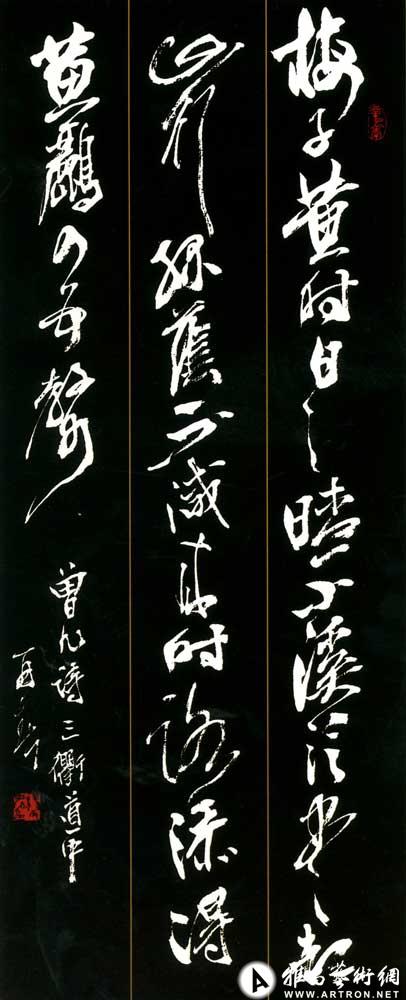 梅子黄时日〻晴小溪泛尽却
山行緑蔭不減来时路添得
黄鸝四五聲
曾几詩三衢道中
雅昌藝術網
WWW.ARTRON.NET